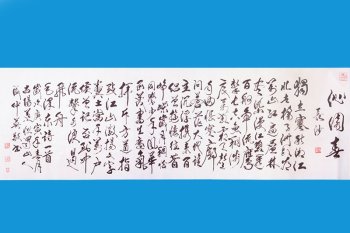 沁园春
长沙
独立寒秋湘江
北去橘子洲头看
万山红遍层林
尽染漫江碧透
百舸争流鹰
击长空鱼翔浅
底万类霜天竞
自由怅寥廓
问苍茫大地谁
主沉浮携来百
侣曾游忆往昔
峥嵘岁月稠恰
同学少年风华
正茂书生意气
挥斥方遒指
点江山激扬文字
粪土当年万户
侯曾记否到中
流击水浪遏
飞舟
毛泽东诗一首